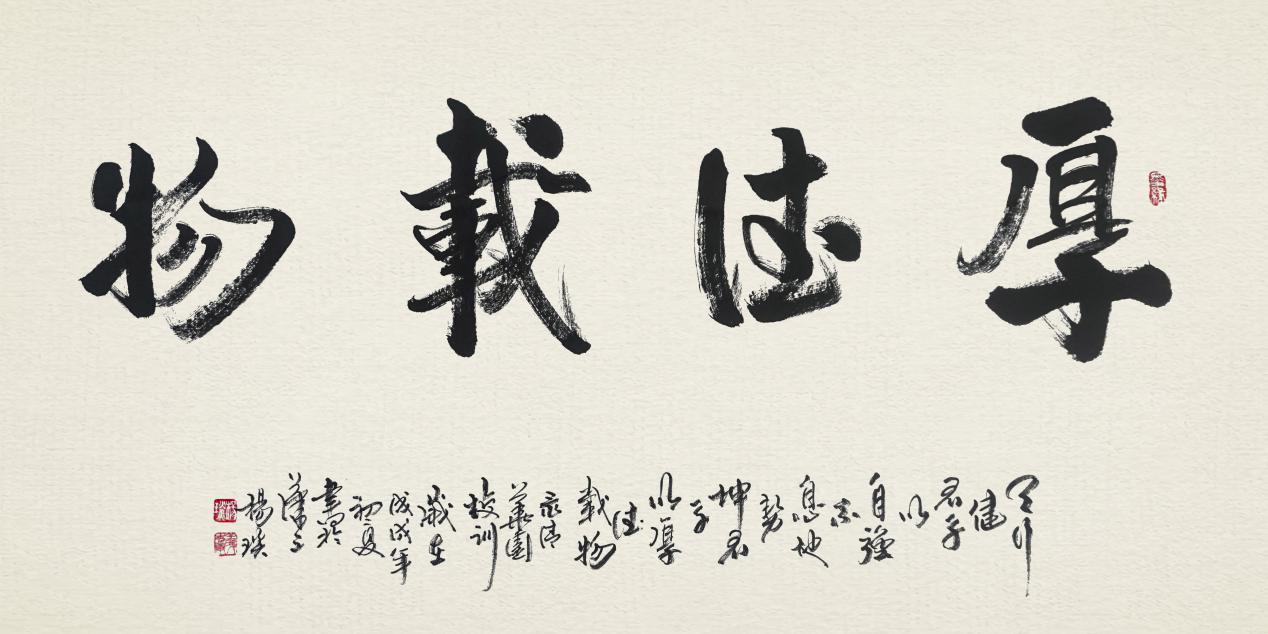 厚德載物
天行
健
君子
以
自強
不
息地
勢
坤君
子
以厚
德
載物
录清
華園
校訓
歲在
戊戌年
初夏
書於
楊